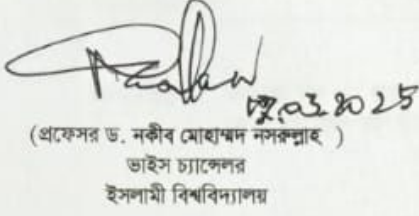 .03.2025
(প্রফেসর ড. নকীব মোহাম্মদ নসরুল্লাহ )
ভাইস চ্যান্সেলর
ইসলামী বিশ্ববিদ্যালয়